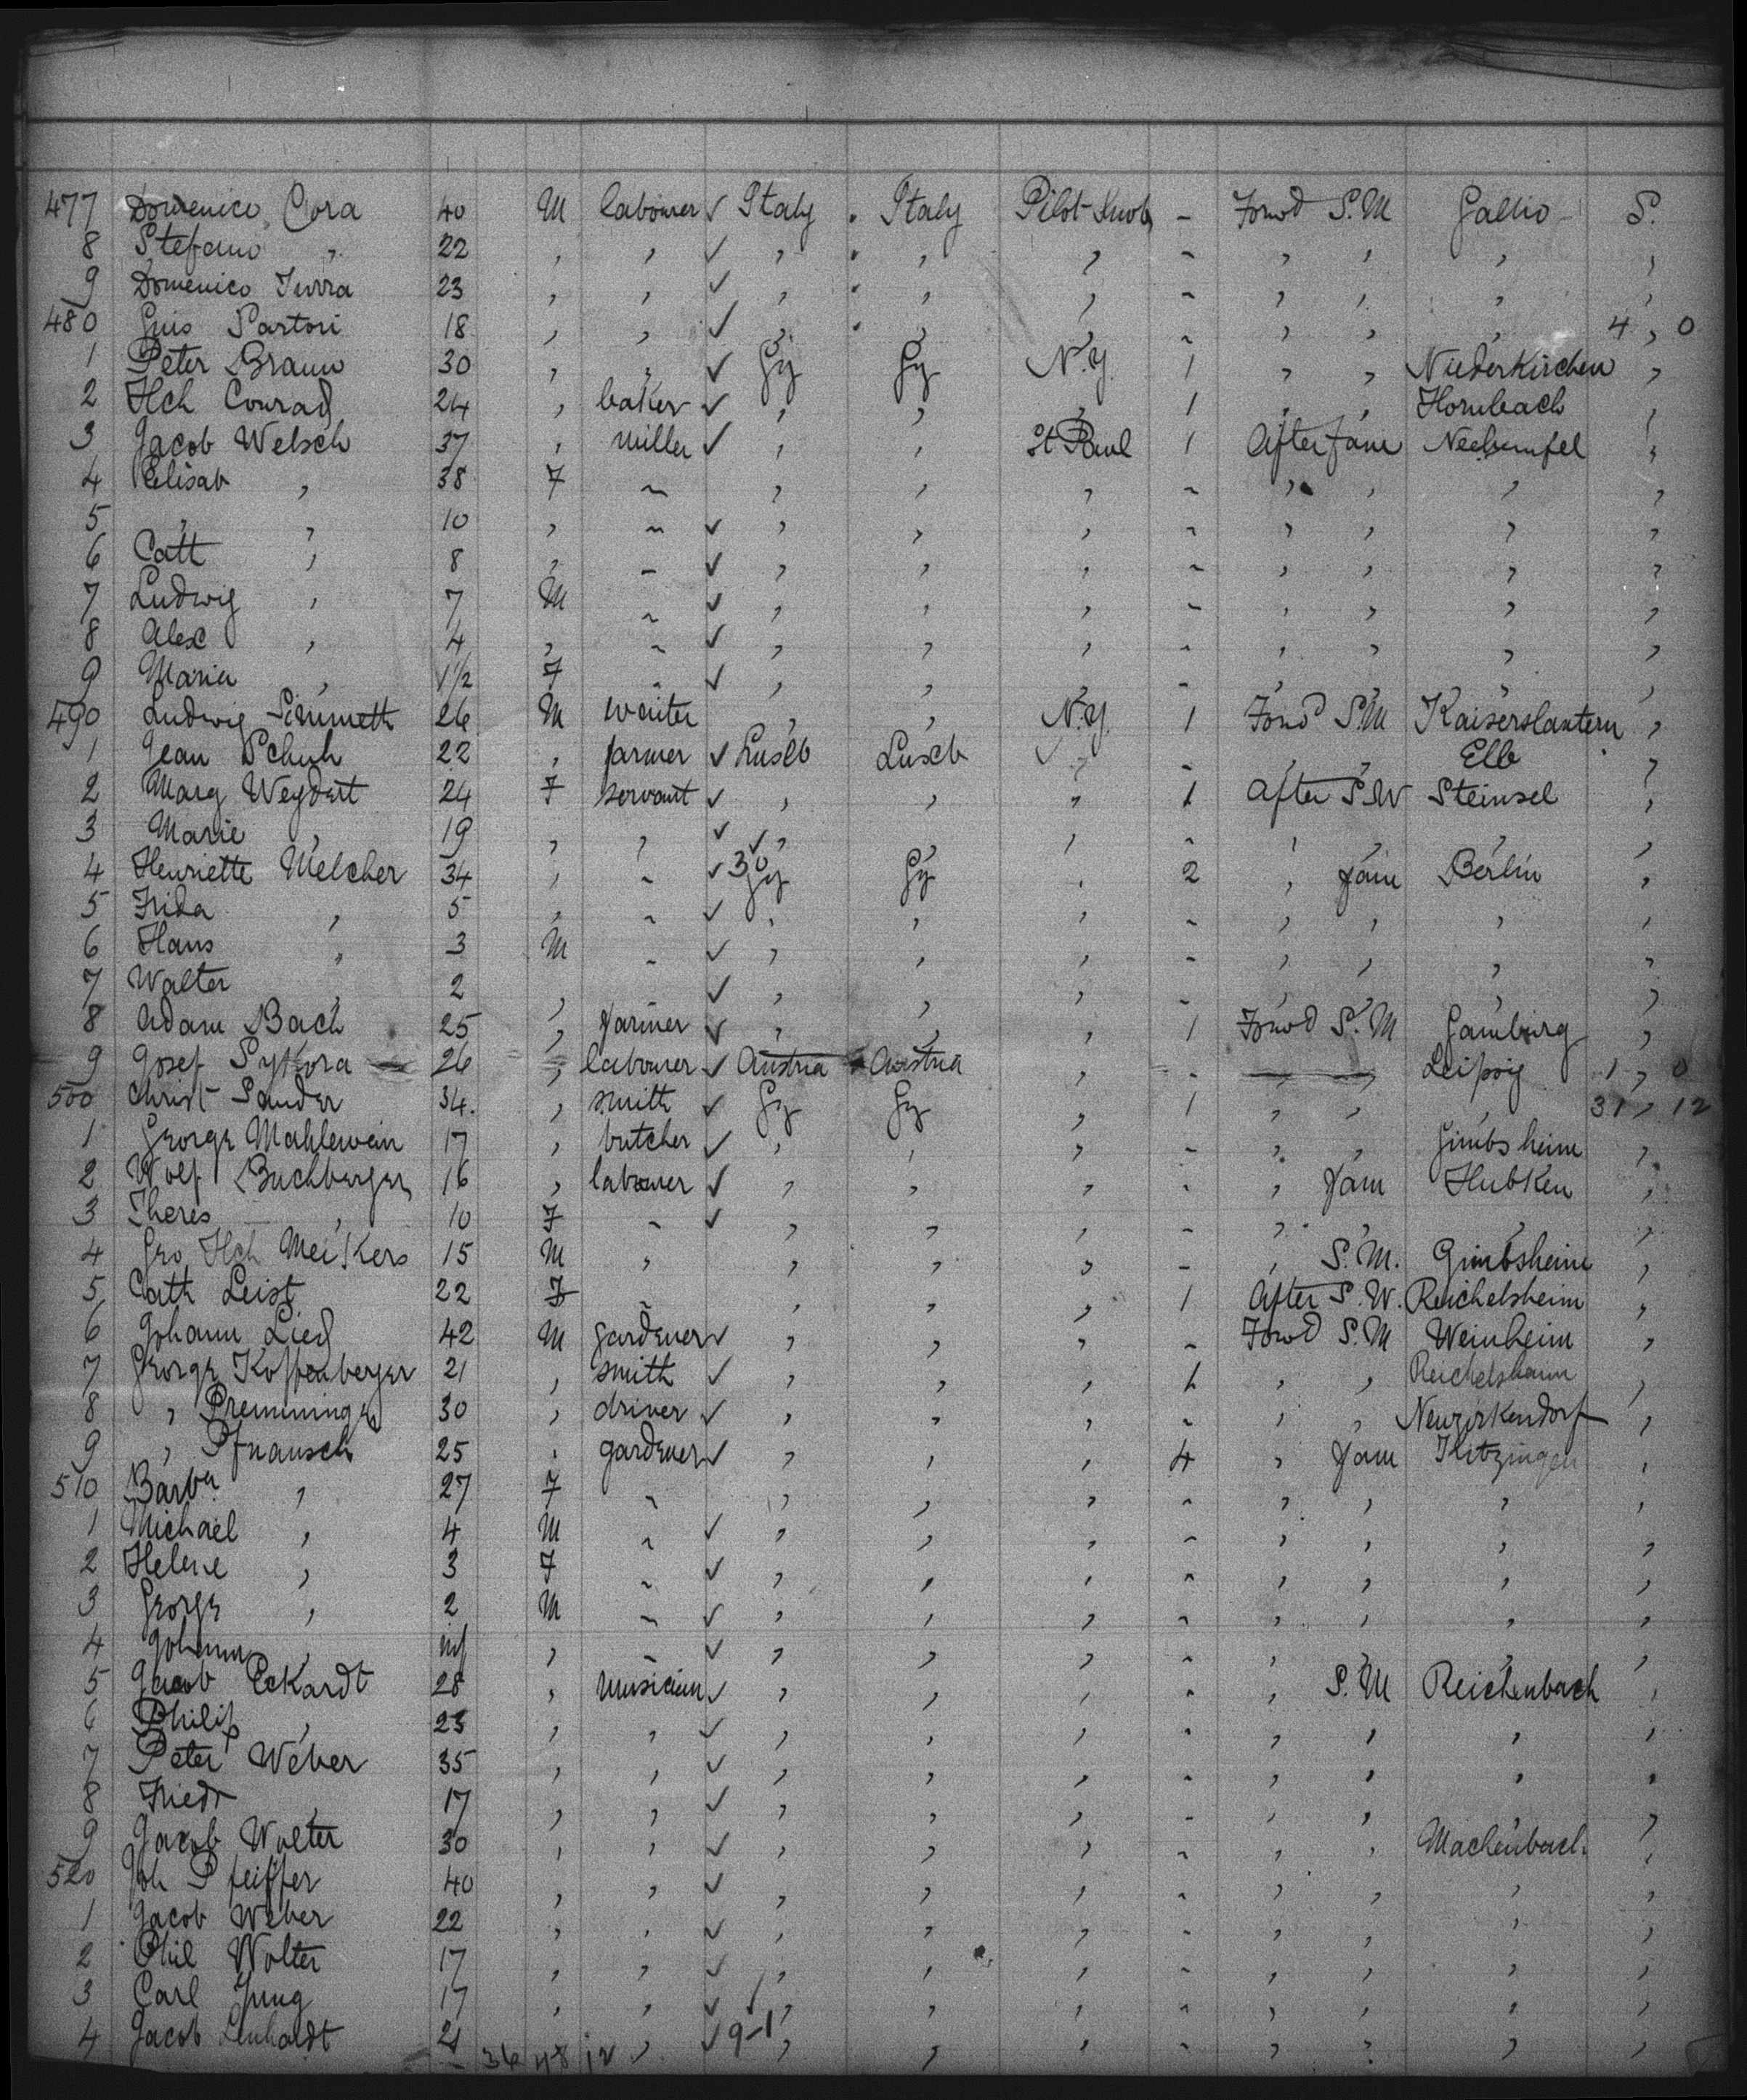 477 Domenico Cora 40 M labourer ✓ Italy " Italy Pilot Knob - Forwd S.M Gallio S.
8 Stefano " 22 " " ✓ " " " " - " " " "
9 Domenico Turra 23 " " ✓ " " " " - " " " "
480 Gius Sartori 18 " " ✓ " " " " - " " " 4 " 0
1 Peter Braun 30 " " ✓ Gy Gy N.Y. 1 " " Niederkirchen "
2 Hch Conrad 24 " baker ✓ " " " 1 " " Hornbach "
3 Jacob Welsch 37 " miller ✓ " " St Paul 1 After fam "
4 Elisab " 38 F - " " " - " " " "
5 " " 10 " - ✓ " " " - " " " "
6 Cath " 8 " - ✓ " " " - " " " "
7 Ludwig " 7 M - ✓ " " " - " " " "
8 Alex " 4 " - ✓ " " " - " " " "
9 Maria " 1 1/2 F - ✓ " " " - " " " "
490 Ludwig 26 M waiter " " N.Y. 1 Forwd S.M Kaiserslautern "
1 Jean Schuh 22 " farmer ✓ Luxeb Luxeb ✓ " - " " Ell "
2 Marg Weydert 24 F servant ✓ " " " 1 After S.W Steinsel "
3 Marie " 19 " " ✓ ✓ " " " - " " " "
4 Henriette Melcher 34 " - ✓ 30 Gy Gy " 2 " fam Berlin "
5 Frida " 5 " - ✓ " " " - " " " "
6 Hans " 3 M - ✓ " " " - " " " "
7 Walter " 2 " - ✓ " " " - " " " "
8 Adam Bach 25 " farmer ✓ " " " 1 Forwd S.M Gamburg "
9 Josef Sykora 26 " labourer ✓ Austria Austria " - " " Leipzig 1 " 0
500 Christ Sander 34. " smith ✓ Gy Gy " 1 " " " 31 " 12
1 George Mahlerwein 17 " butcher ✓ " " " - " " Gimbsheim "
2 Wolf Buchberger 16 " labourer ✓ " " " - " fam Hubken "
3 Theres " 10 F - ✓ " " " - " " " "
4 Geo Hch Meikers 15 M " " " " - " S.M. Gimbsheim "
5 Cath Leist 22 F - " " " 1 After S.W. Reichelsheim "
6 Johann Lied 42 M gardener ✓ " " " - Forwd S.M Weinheim "
7 George Koffenberger 21 " smith ✓ " " " 1 " " Reichelsheim "
8 " Premminger 30 " driver ✓ " " " - " " Neuzirkendorf "
9 " Pfnausch 25 " gardener ✓ " " " 4 " fam Kitzingen "
510 Barba " 27 F - " " " - " " " "
1 Michael " 4 M - ✓ " " " - " " " "
2 Helene " 3 F - ✓ " " " - " " " "
3 George " 2 M - ✓ " " " - " " " "
4 Johann " inf " - ✓ " " " - " " " "
5 Jacob Eckardt 28 " musician ✓ " " " - " S.M Reichenbach "
6 Philip " 23 " " ✓ " " " - " " " "
7 Peter Weber 35 " " ✓ " " " - " " " "
8 Friedr " 17 " " ✓ " " " - " " " "
9 Jacob Wolter 30 " " ✓ " " " - " " Machenbach. "
520 Joh Pfeiffer 40 " " ✓ " " " - " " " "
1 Jacob Weber 22 " " ✓ " " " - " " " "
2 Phil Wolter 17 " " ✓ " " " - " " " "
3 Carl Jung 17 " " ✓ / " " " - " " " "
4 Jacob Lenhardt 21 " ✓ 9-1 " " " - " " " "
36 48 12